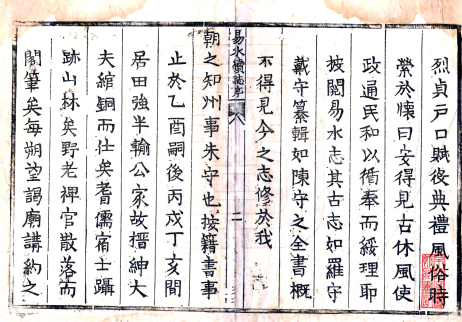 烈貞戶口賦役典禮風俗時
縈於懷曰安得見古休風使
政通民和以循奉而綏理耶
披閱易水志其古志如羅守
戴守纂輯如陳守之全書概
不得見今之志修於我
易水續志序
二
朝之知州事朱守也按籍書事
止於乙酉嗣後丙戌丁亥間
居田強半輸公家故搢紳大
夫綰銅而仕矣耆儒宿士躡
跡山林矣野老稗官散落而
閣筆矣每朔望謁廟講約之